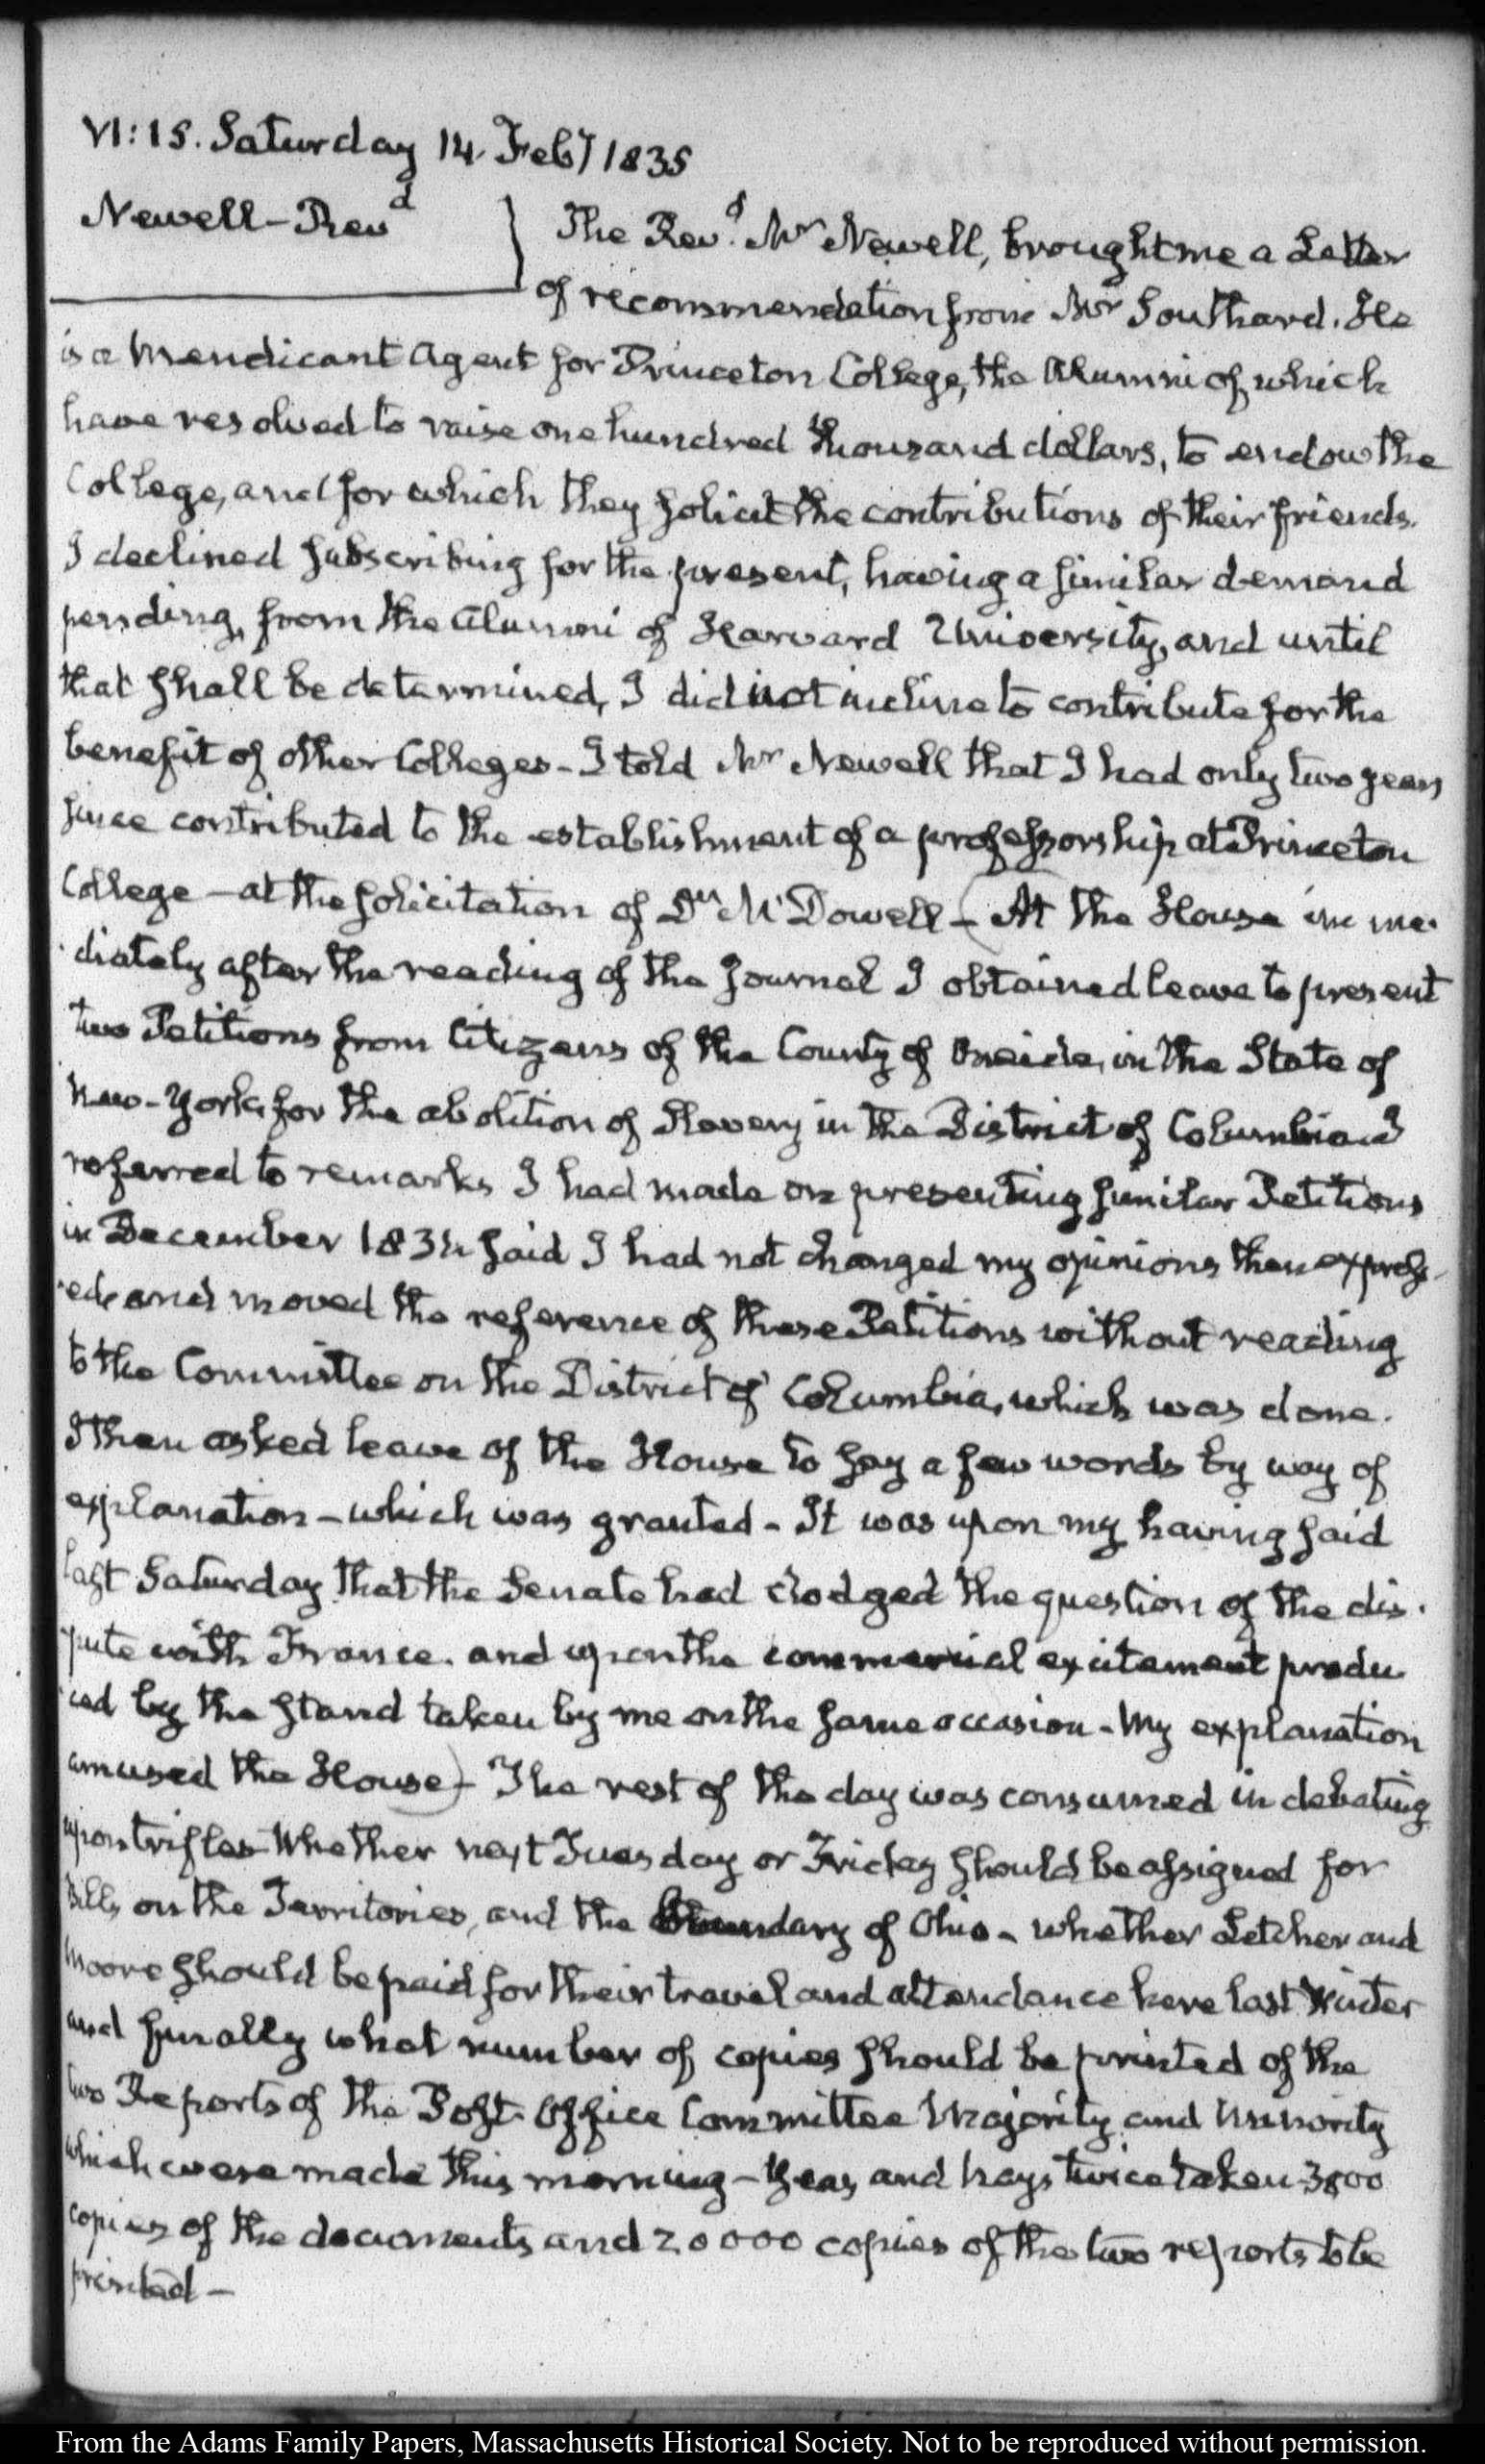 VI:15. Saturday 14. Feby 1835
Newell—Revd
The Revd. Mr Newell, brought me a Letter
of recommendation from Mr Southard. He
is a Mendicant Agent for Princeton College, the Alumni of which
have resolved to raise one hundred thousand dollars, to endow the
College, and for which they solicit the contributions of their friends.
I declined subscribing for the present, having a similar demand
pending, from the Alumni of Harvard University, and until
that shall be determined, I did not incline to contribute for the
benefit of other Colleges - I told Mr Newell that I had only two years
since contributed to the establishment of a professorship at Princeton
College — at the solicitation of Dr McDowell - (At the House imme-
diately after the reading of the Journal I obtained leave to present
two Petitions from Citizens of the County of Oneida, in the State of
New-York, for the abolition of Slavery in the District of Columbia I
referred to remarks I had made on presenting similar Petitions
in December 1831, said I had not changed my opinions then express-
ed, and moved the reference of these Petitions without reading
to the Committee on the District of Columbia, which was done.
I then asked leave of the House to say a few words by way of
explanation - which was granted - It was upon my having said
last Saturday that the Senate had dodged the question of the dis-
pute with France. and upon the commercial excitement produ
ced by the stand taken by me on the same occasion - My explanation
amused the House) - The rest of the day was consumed in debating
upon trifles - Whether next Tuesday or Friday should be assigned for
Bills on the Territories, and the Boundary of Ohio - whether Letcher and
Moore should be paid for their travel and attendance here last Winter
and finally what number of copies should be printed of the
two Reports of the Post-Office Committee Majority and Minority
which were made this morning - Yeas and Nays twice taken 3000
copies of the documents and 20000 copies of the two reports to be
printed -
From the Adams Family Papers, Massachusetts Historical Society. Not to be reproduced without permission.